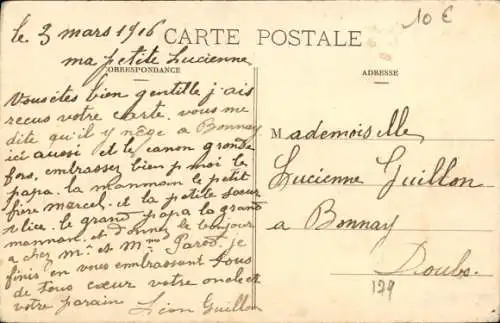 le 3 mars 1916
10 €
CARTE POSTALE
ma petite Lucienne
CORRESPONDANCE
ADRESSE
Vous êtes bien gentille j'ais
recus votre carte. vous me
dite qu'il y nège a Bonnay
ici aussi et le canon gronde
fors, embrassez bien p moi le
papa. la manman le petit
frère marcel. et la petite sœur
alice. le grand papa la grand
manman. et donnez le bonjour
a chez mr. et mme Parod. je
finis en vous embrassant tous
de tous cœur votre oncle et
votre parain Léon Guillon
Mademoiselle
Lucienne Guillon
a Bonnay
Doubs.
179